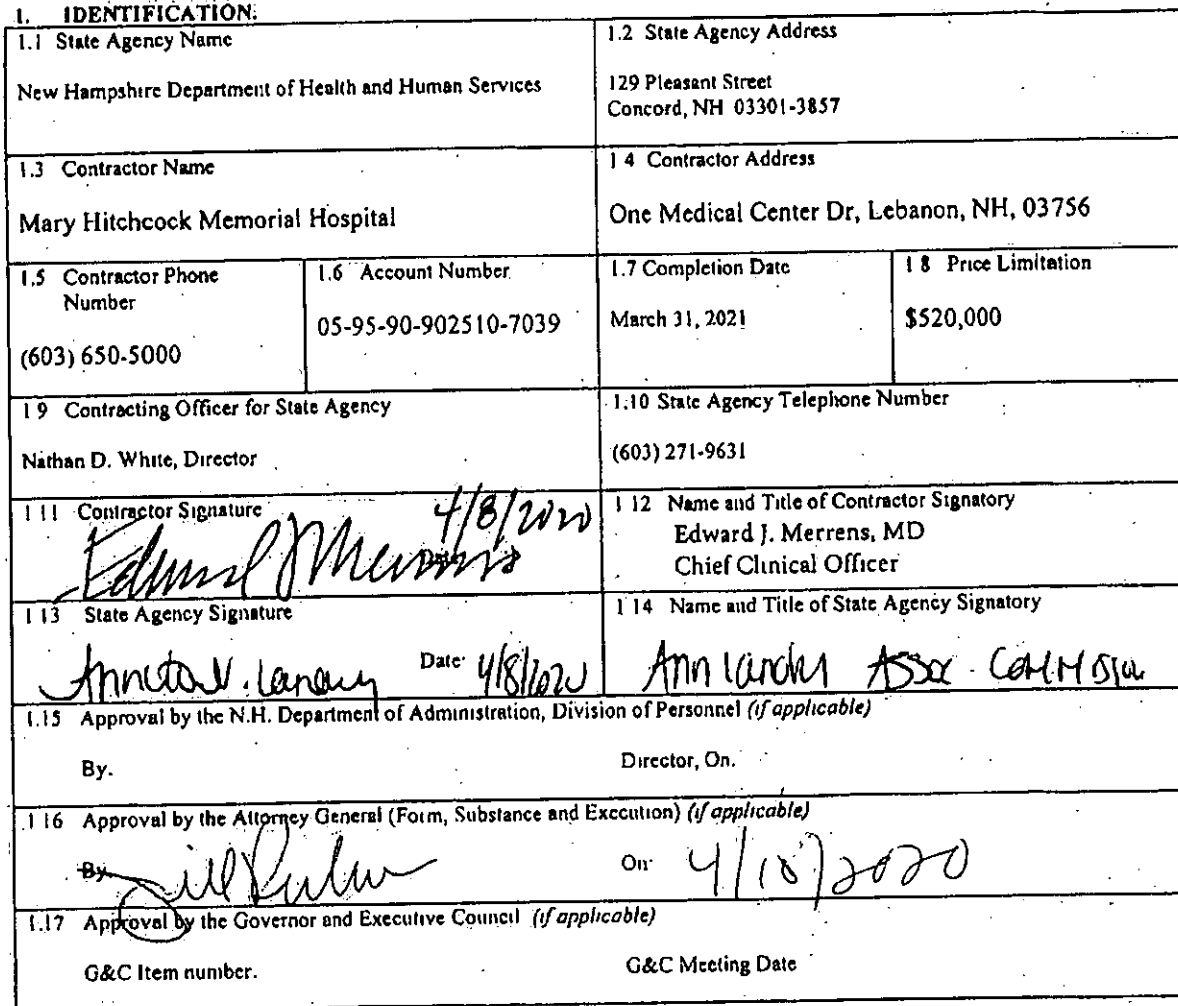 1. IDENTIFICATION.
1.1 State Agency Name
New Hampshire Department of Health and Human Services
1.2 State Agency Address
129 Pleasant Street
Concord, NH 03301-3857
1.3 Contractor Name
Mary Hitchcock Memorial Hospital
1 4 Contractor Address
One Medical Center Dr, Lebanon, NH, 03756
1.5 Contractor Phone
Number
(603) 650-5000
1.6 Account Number
05-95-90-902510-7039
1.7 Completion Date
March 31, 2021
1 8 Price Limitation
$520,000
1 9 Contracting Officer for State Agency
Nathan D. White, Director
1.10 State Agency Telephone Number
(603) 271-9631
1 11 Contractor Signature
4/8/2020
1 12 Name and Title of Contractor Signatory
Edward J. Merrens, MD
Chief Clinical Officer
1 13 State Agency Signature
Date: 4/8/2020
1 14 Name and Title of State Agency Signatory
Ann Landry Assoc. Commissio
1.15 Approval by the N.H. Department of Administration, Division of Personnel (if applicable)
By.
Director, On.
1 16 Approval by the Attorney General (Form, Substance and Execution) (if applicable)
By
On: 4/10/2020
1.17 Approval by the Governor and Executive Council (if applicable)
G&C Item number.
G&C Meeting Date